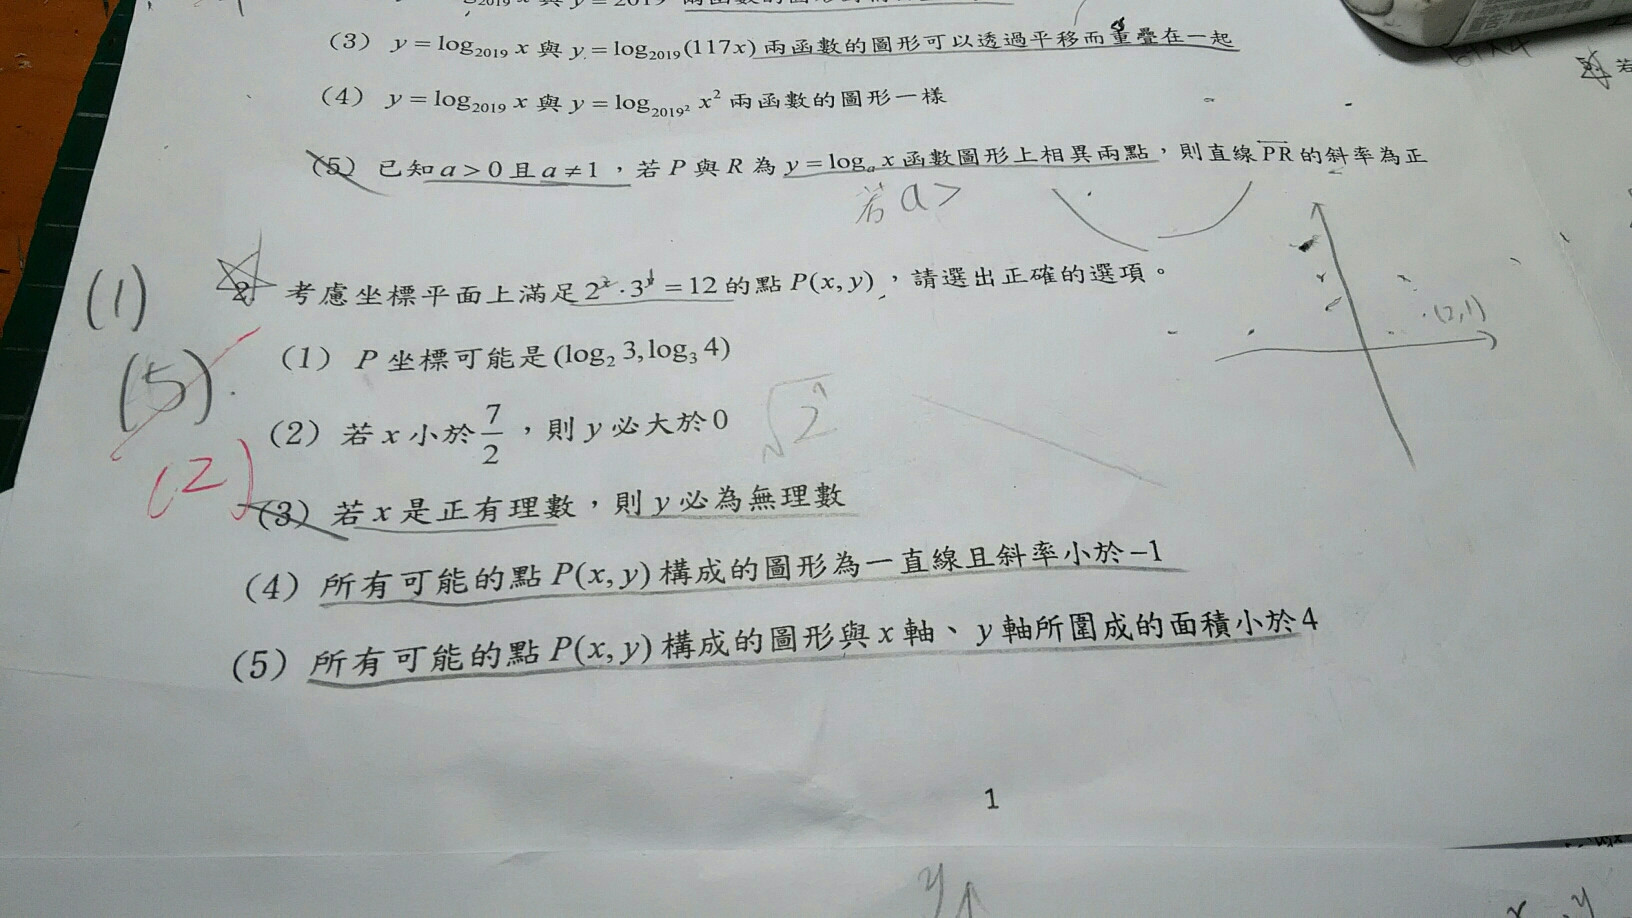 兩函數的圖形
(3) y = log₂₀₁₉ x 與 y = log₂₀₁₉(117x) 兩函數的圖形可以透過平移而重疊在一起
(4) y = log₂₀₁₉ x 與 y = log₂₀₁₉² x² 兩函數的圖形一樣
(5) 已知 a > 0 且 a ≠ 1，若 P 與 R 為 y = logₐ x 函數圖形上相異兩點，則直線 PR 的斜率為正
若 a >
(1)
2. 考慮坐標平面上滿足 2ˣ · 3ʸ = 12 的點 P(x, y)，請選出正確的選項。
(2,1)
(1) P 坐標可能是 (log₂ 3, log₃ 4)
(5)
(2) 若 x 小於 7/2，則 y 必大於 0
√2
(2)
(3) 若 x 是正有理數，則 y 必為無理數
(4) 所有可能的點 P(x, y) 構成的圖形為一直線且斜率小於 −1
(5) 所有可能的點 P(x, y) 構成的圖形與 x 軸、y 軸所圍成的面積小於 4
1
y
x
y
若